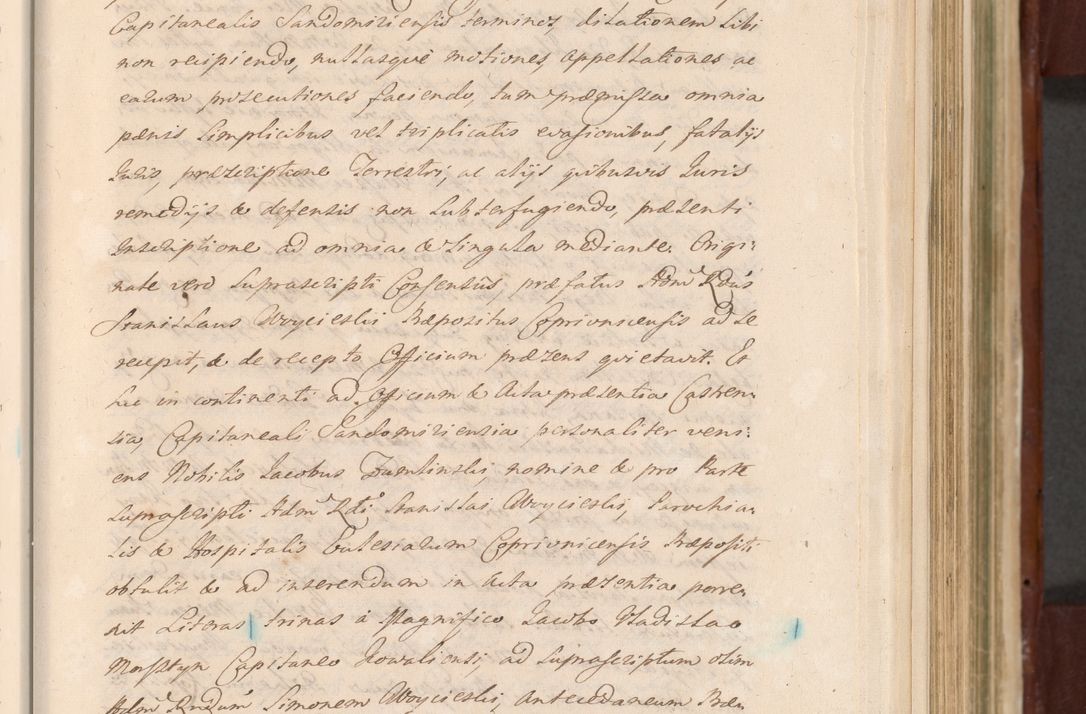 Capitanealis Sandomiriensis terminos, dilationem sibi
non recipiendo, nullasque motiones, appellationes ac
earum prosecutiones faciendo, tum præmissa omnia
pænis simplicibus vel triplicatis evasionibus, fatalijs
Juris, præscriptione Terrestri, ac alijs quibusvis Juris
remedijs & defensis non subterfugiendo, præsenti
Inscriptione ad omnia & singula mediante. Origi:
nale vero suprascripti Consensus, præfatus Adm Rdus
Stanislaus Woycieski Præpositus Coprivnicensis ad se
recepit, & de recepto Officium præsens quietavit. Et
hic in continenti ad Officium & Acta præsentia Castren:
sia, Capitaneali Sandomiriensia personaliter veni:
ens Nobilis Jacobus Tumlinski, nomine & pro Parte
suprascripti Adm Rdi Stanislai Woycieski, Parochia:
lis & Hospitalis Ecclesiarum Coprivnicensis Præpositi
obtulit & ad inserendum in Acta præsentia porre:
xit Literas trinas à Magnifico Jacobo Vladislao
Morsztyn Capitaneo Kowaliensi, ad suprascriptum olim
Adm Rndum Simonem Woycieski, Antecedaneum Præ: